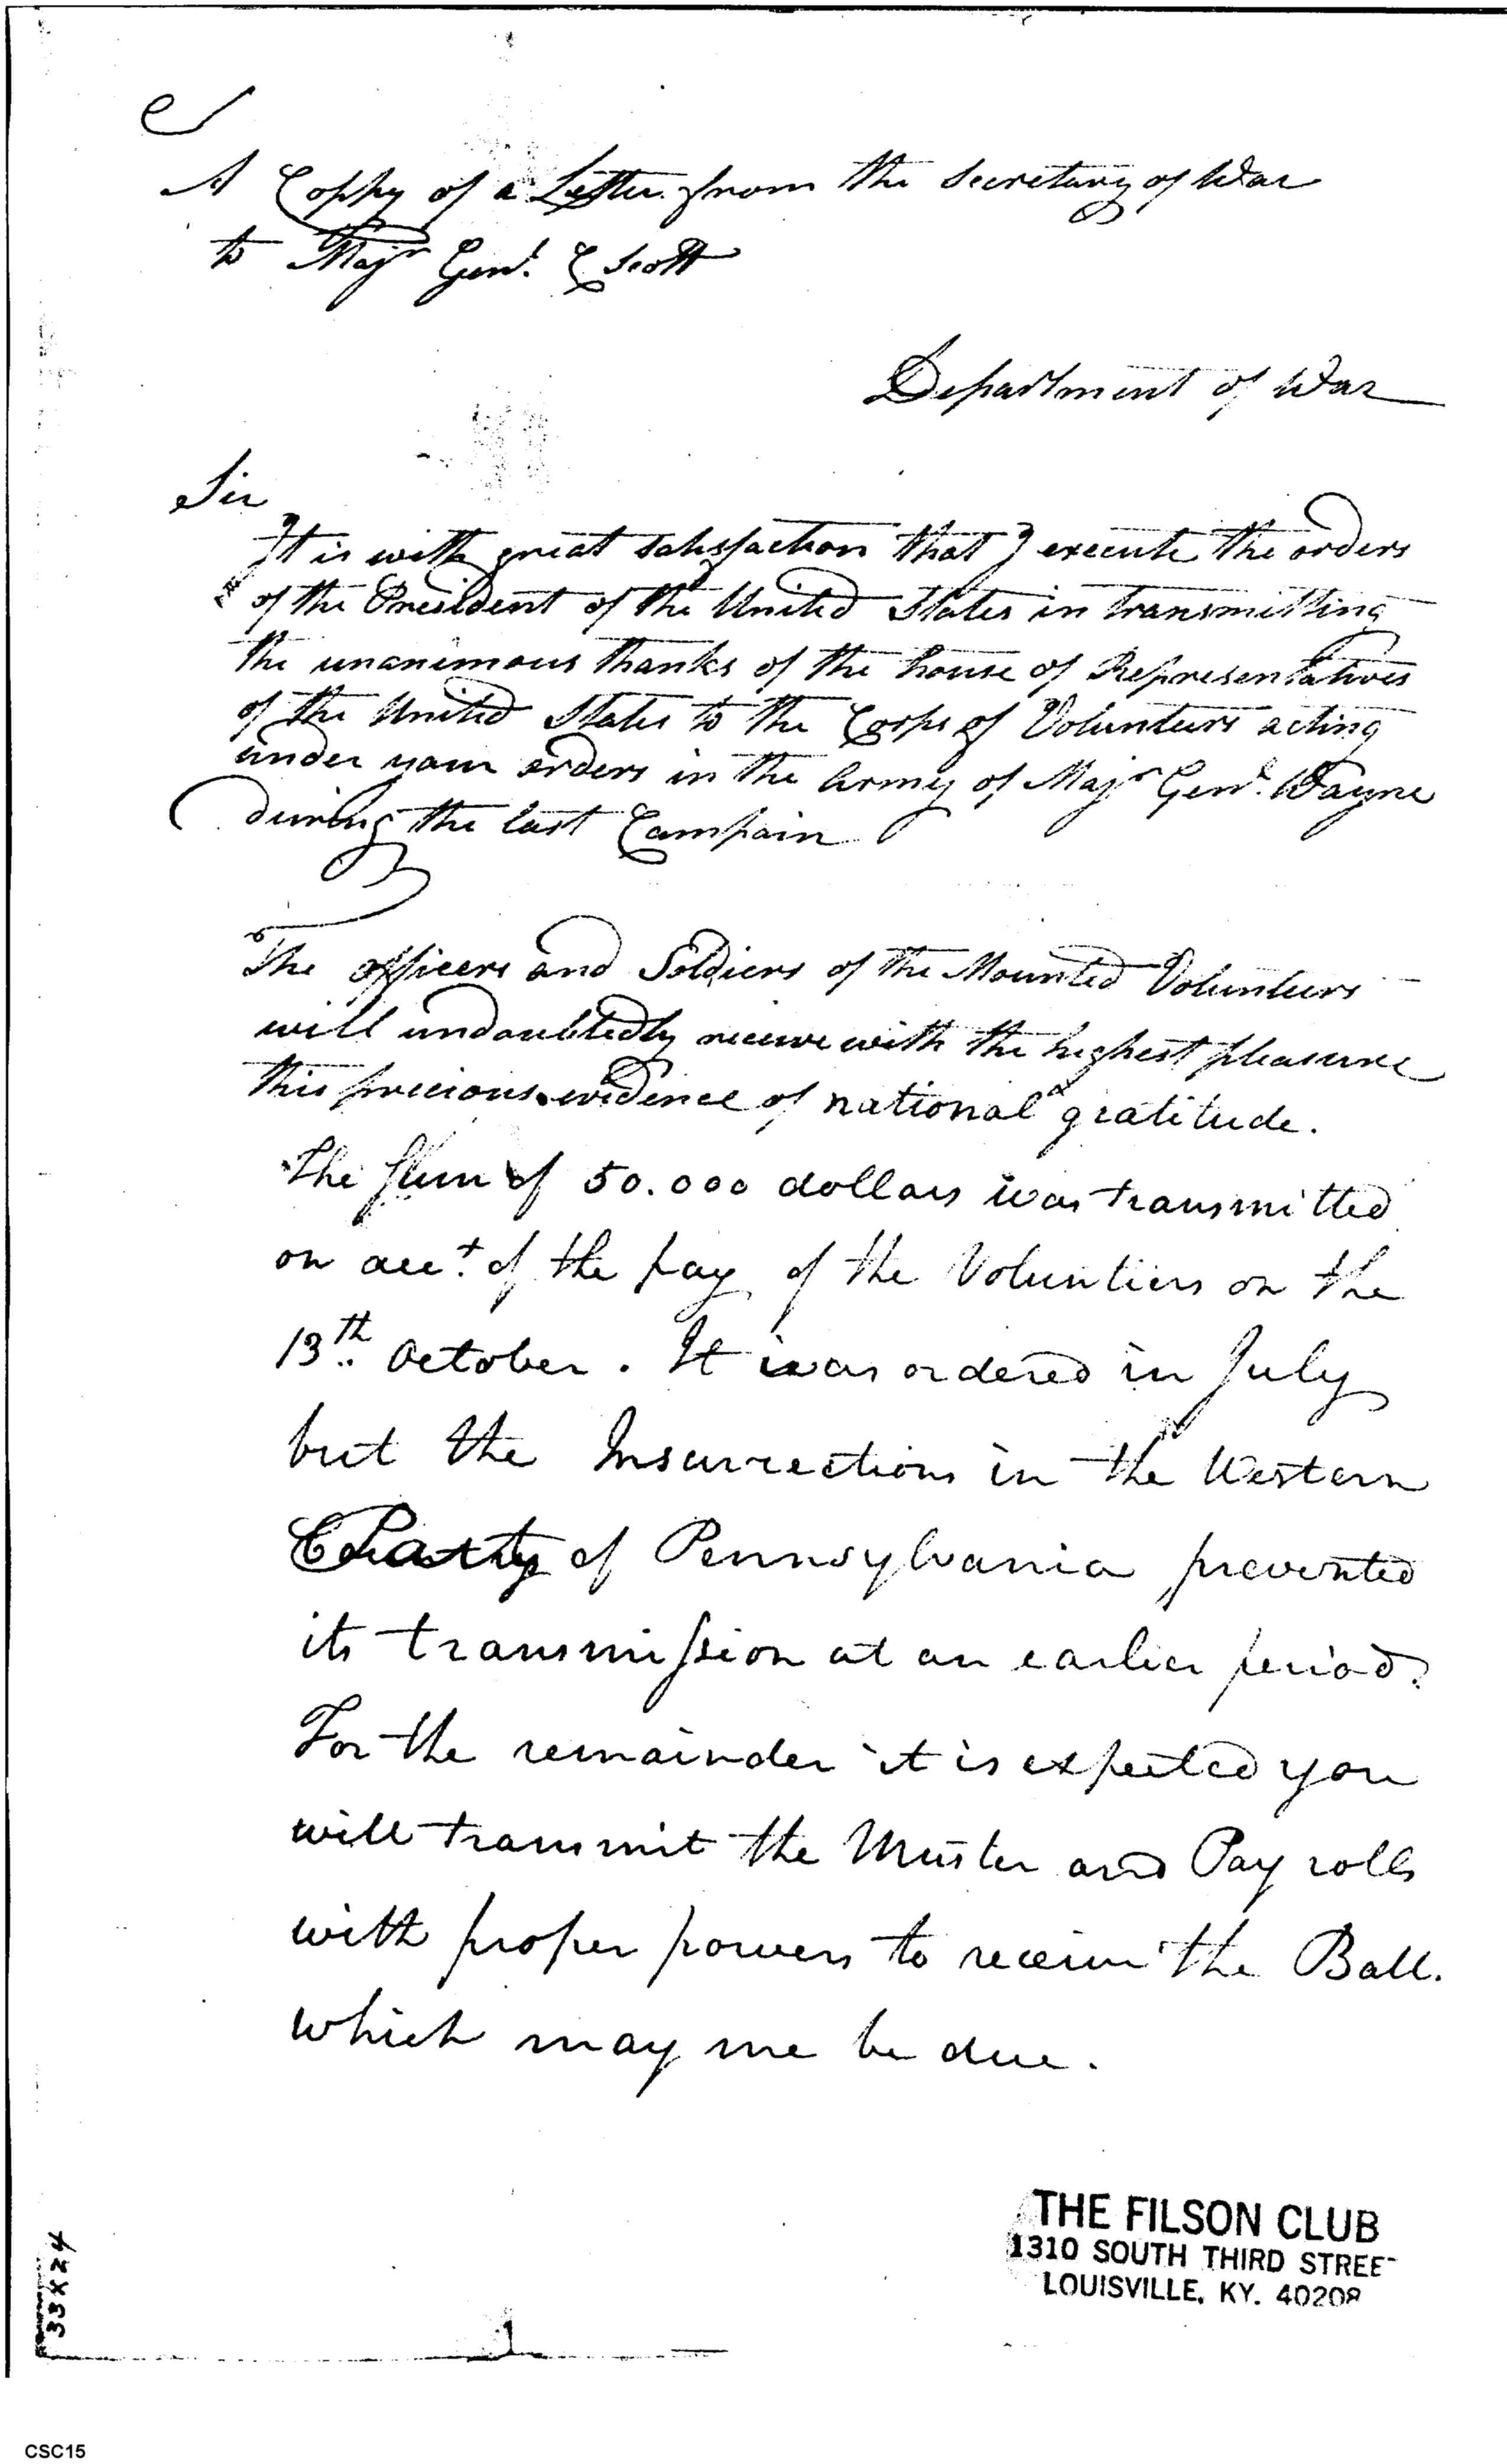 A Coppy of a Letter from the Secretary of War
to Majr Genl. C Scott
Department of War
Sir
It is with great satisfaction that I execute the orders
of the President of the United States in transmitting
the unanimous thanks of the house of Representatives
of the United States to the Corps of Volunteers acting
under your orders in the Army of Majr Genl. Wayne
during the last Campain
The officers and Soldiers of the Mounted Volunteers
will undoubtedly receive with the highest pleasure
this precious evidence of national gratitude.
The Sum of 50.000 dollars was transmitted
on acct. of the pay of the Voluntiers on the
13th. October. It was ordered in July
but the Insurrections in the Western
of Pennsylvania prevented
its transmission at an earlier period.
For the remainder it is expected you
will transmit the Muster and Pay rolls
with proper powers to receive the Ball.
which may me be due.
THE FILSON CLUB
1310 SOUTH THIRD STREET
LOUISVILLE, KY. 40208
33X24
1
CSC15